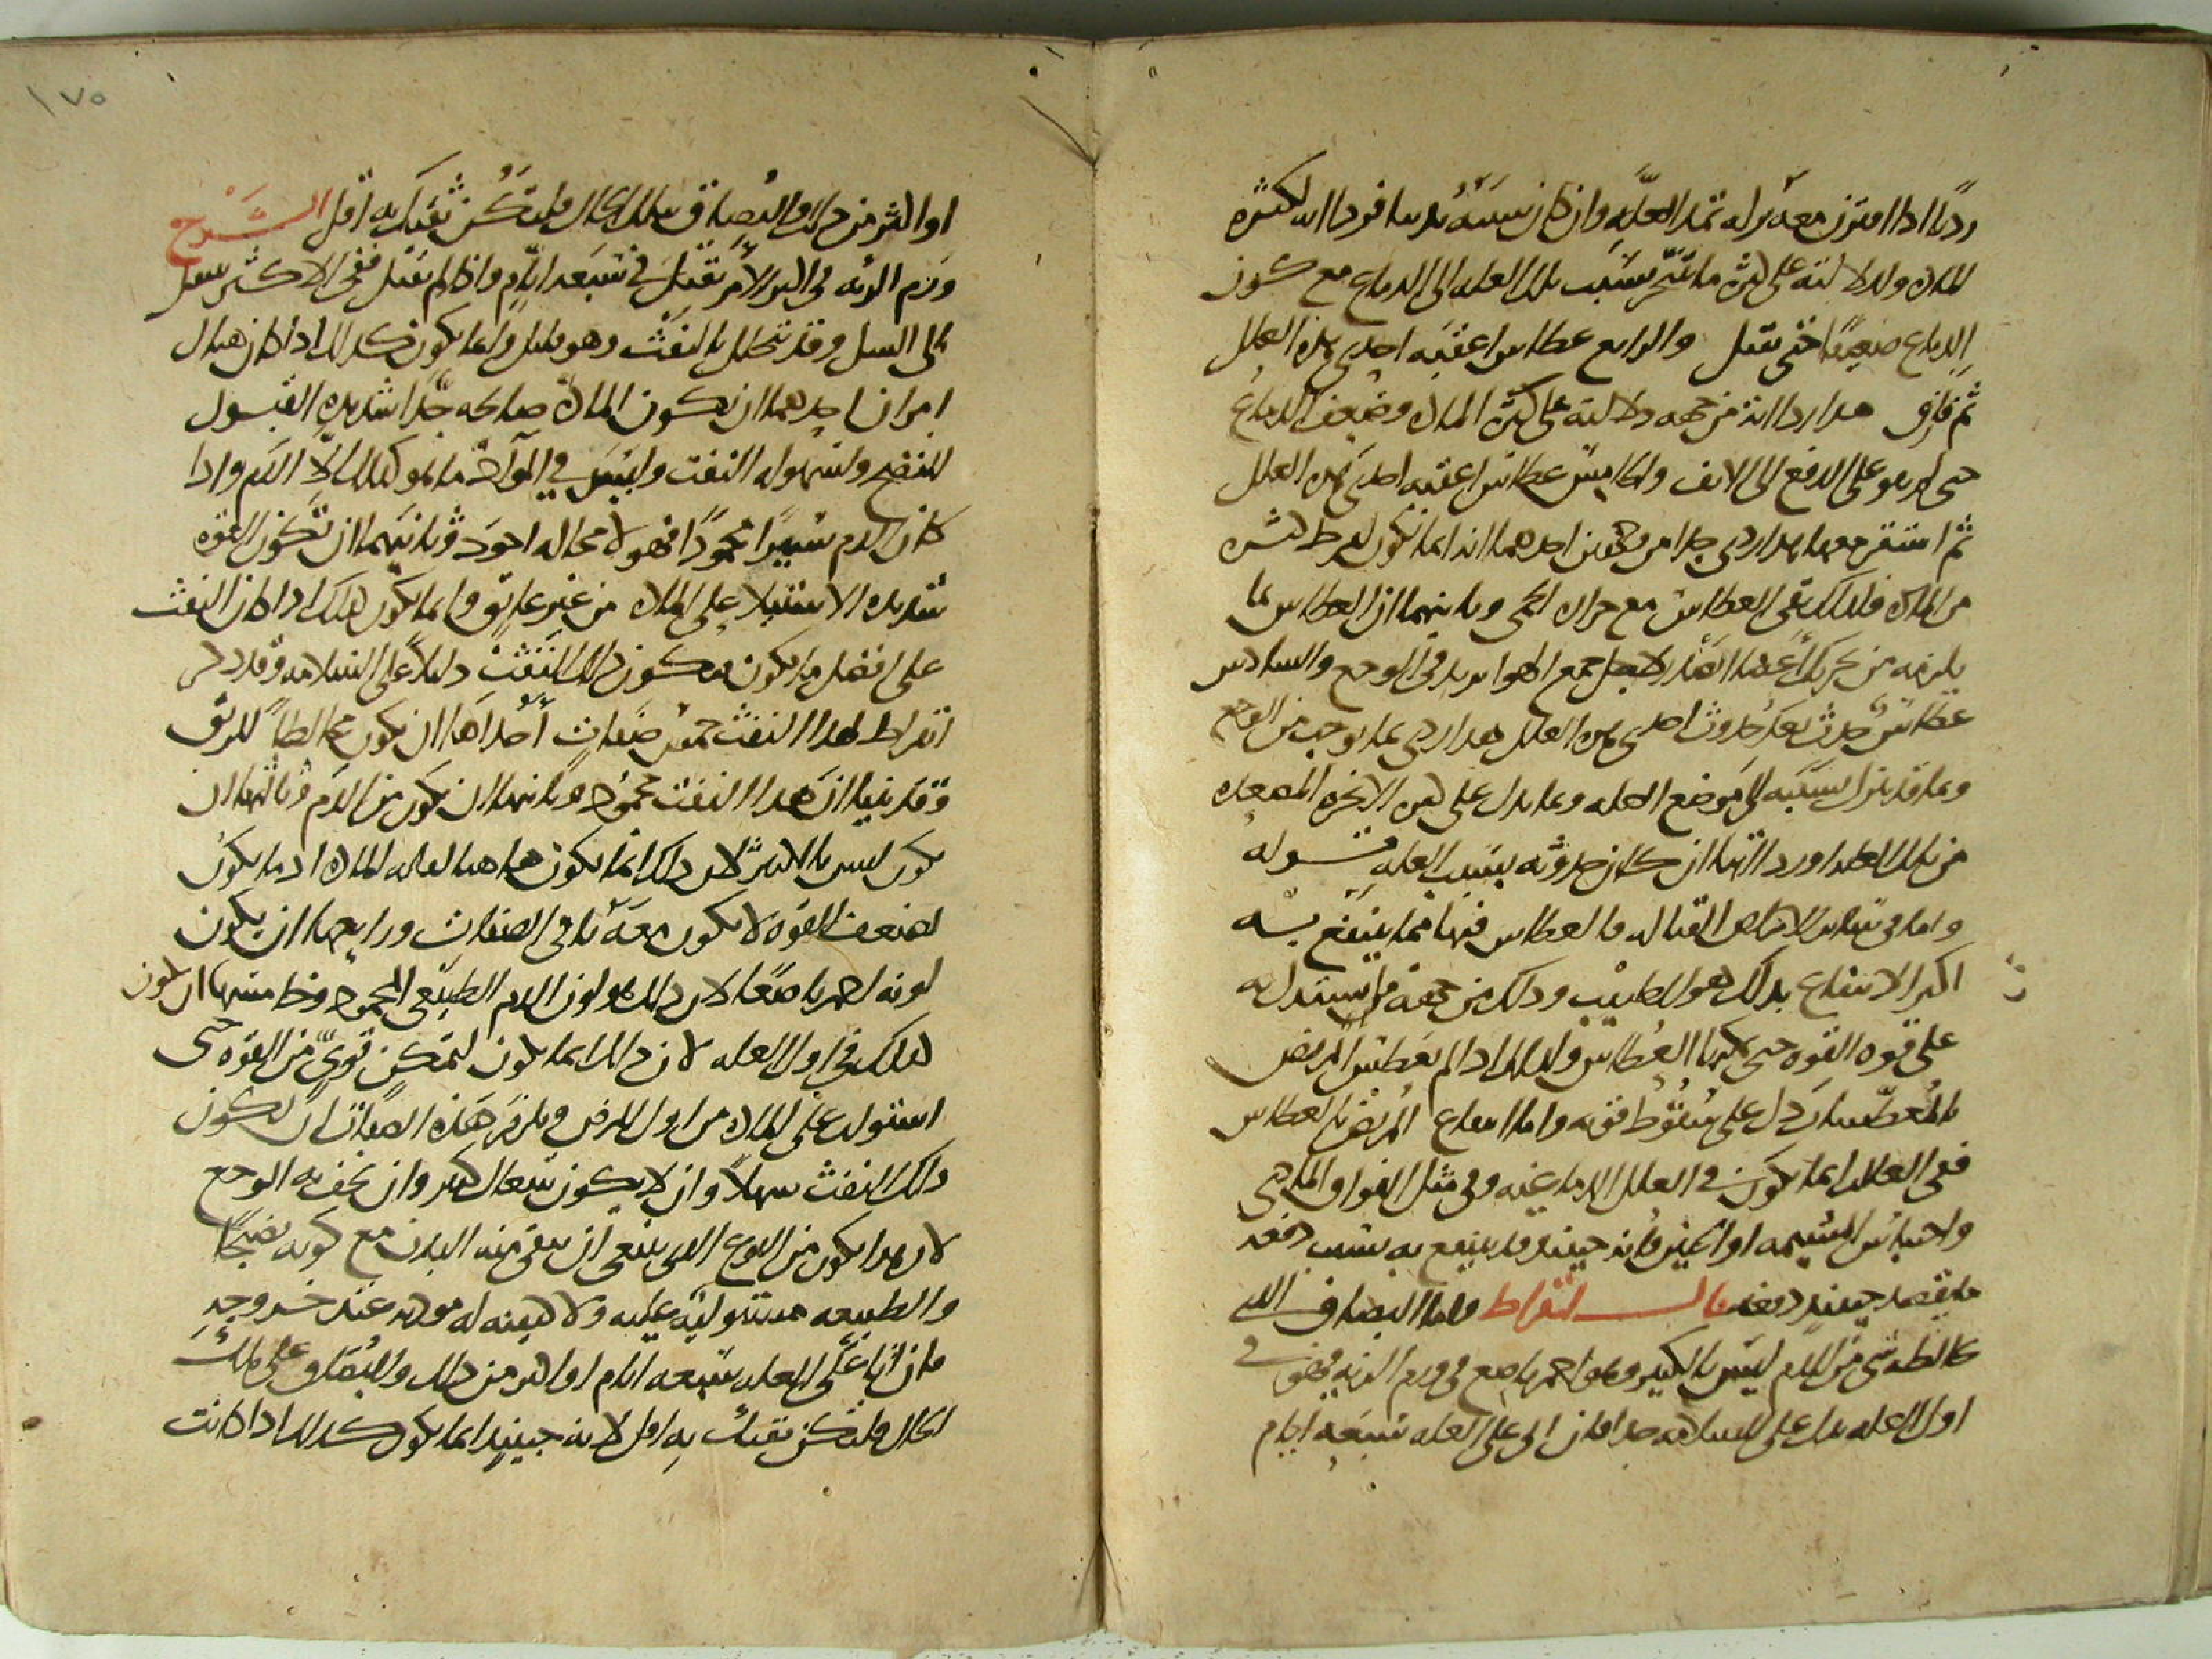 ردىا اذا اقترن معه نزله تمد العلة وان كان سببه بدنيا فردااته لكثره
المادة ولدلالته على كثرة ما يتبخر بسبب تلك العله الى الدماغ مع كون
الدماغ ضعيفا حتى يقبل والرابع عطاس اعقبه احدى هذه العلل
ثم فارق هذا رداءته من جهه دلالته على كثرة المادة وضعف الدماغ
حتى لم يقو على الدفع الى الانف والخامس عطاس اعقبه احدى هذه العلل
ثم استقر معها هذا ردى جدا من وجهين احدهما انه انما يكون لفرط كثره
من المادة فلذلك بقى العطاس مع حراره الحمى وثانيهما ان العطاس بما
يلزمه من تحريك اعضاء الصدر لاجل جمع الهواء يزيد فى الوجع والسادس
عطاس حدث بعد حدوث احدى هذه العلل هذا ردى بما يوجب من الوجع
وبما قد ينزل بسببه الى موضع العله وبما يدل على كثرة الابخره المصعده
من تلك العله واردااتها ان كان حدوثه بسبب العله قوله
واما فى سائر الامراض القتاله فالعطاس فيها مما ينتفع به
اكثر الانتفاع بذلك هو للطبيب وذلك من جهة ما يستدل به
على قوه القوه حتى يمكنها العطاس ولذلك اذا لم يعطس المريض
بالمعطسات دل على سقوط قوته واما انتفاع المريض بالعطاس
ففى العلل انما يكون فى العلل الدماغيه وفى مثل الفواق المادى
واحتباس المشيمه او الجنين فانه حينئذ قد ينتفع به بسبب دفعه
ما يقصد حينئذ دفعه قال ابقراط واما البصاق الذى
يخالطه شى من الدم ليس بالكثير وهو احمر ناصع فى ورم الرئه فهو فى
اول العله يدل على السلامه جدا فان اتى على العله سبعه ايام
او اكثر من ذلك والبصاق بتلك الحال فلتكن ثقتك به اقل الشرح
ورم الرئه فى اكثر الامر يقتل فى سبعه ايام واذا لم يقتل ففى الاكثر ينتقل
الى السل وقد يتحلل بالنفث وهو قليل وانما يكون كذلك اذا كان هناك
امران احدهما ان تكون المادة صالحه جدا شديده القبول
للنضج ولسهوله النفث وليس فى المواد ما هو كذلك الا الدم واذا
كان الدم يسيرا محمودا فهو لا محاله اجود وثانيهما ان تكون القوه
شديده الاستيلاء على المادة من غير عايق وانما يكون كذلك اذا كان النفث
على افضل ما يكون فيكون ذلك النفث دليلا على السلامه وقد ذكر
ابقراط لهذا النفث خمس صفات احداها ان يكون مخالطا للريق
وقد بينا ان هذا النفث محمود وثانيها ان يكون من الدم وثالثها ان
يكون ليس بالكثير لان ذلك انما يكون هاهنا لقله المادة اذ ما يكون
لضعف القوه لا يكون معه باقى الصفات ورابعها ان يكون
لونه احمر ناصعا لان ذلك هو لون الدم الطبيعى المحمود وخامسها ان يكون
كذلك فى اول العله لان ذلك انما يكون لتمكن قوى من القوه حتى
استولت على المادة من اول المرض ويلزم هذه الصفات ان يكون
ذلك النفث سهلا وان لا يكون بسعال كثير وان يخف به الوجع
لان هذا يكون من النوع الذى ينبغى ان ينقى منه البدن مع كونه نضيجا
والطبيعه مستوليه عليه ولا كيفيه له موذيه عند خروجه
فان اتى على العله سبعه ايام او اكثر من ذلك والبصاق على تلك
الحال فلتكن ثقتك به اقل لانه حينئذ انما يكون كذلك اذا كانت
١٧٥